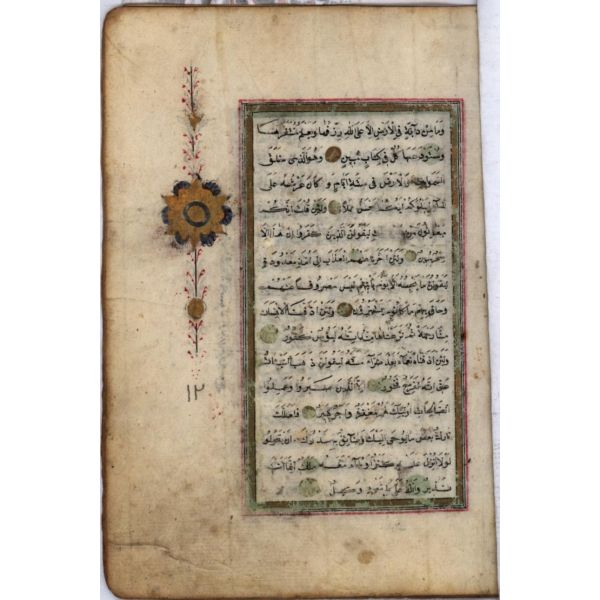 وَمَا مِنْ دَابَّةٍ فِي الْأَرْضِ إِلَّا عَلَى اللَّهِ رِزْقُهَا وَيَعْلَمُ مُسْتَقَرَّهَا
وَمُسْتَوْدَعَهَا كُلٌّ فِي كِتَابٍ مُبِينٍ وَهُوَ الَّذِي خَلَقَ
السموات والارض في ستة ايام وكان عرشه على
الماء ليبلوكم ايكم احسن عملا ولئن قلت انكم
مبعوثون من ليقولن الذين كفروا ان هذا الا
سحر مبين ولئن اخرنا عنهم العذاب الى امة معدودة
ليقولن ما يحبسه الا يوم يأتيهم ليس مصروفا عنهم
وحاق بهم ما كانوا به يستهزؤن ولئن اذقنا الانسان
منا رحمة ثم نزعناها منه انه ليؤس كفور
ولئن اذقناه نعماء بعد ضراء مسته ليقولن ذهب السيئات
عني انه لفرح فخور الا الذين صبروا وعملوا
الصالحات اولئك لهم مغفرة واجر كبير فلعلك
تارك بعض ما يوحى اليك وضائق به صدرك ان يقولوا
لولا انزل عليه كنز او جاء معه ملك انما انت
نذير والله على كل شيء وكيل
١٢